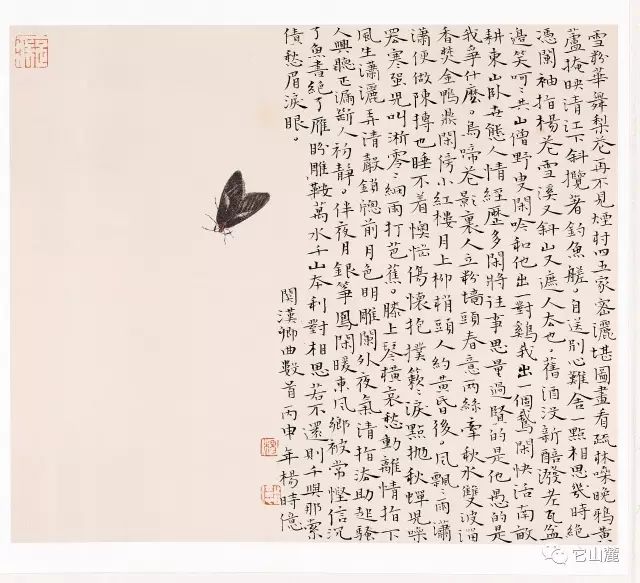 雪粉華舞梨花再不見煙村四五家密灑堪圖畫看疎林噪晚鴉黃
蘆掩映清江下斜攬著釣魚艖。自送別心難舍一點相思幾時絕
憑闌袖拂楊花雪溪又斜山又遮人去也，舊酒沒新醅潑老瓦盆
邊笑呵々共山僧野叟閑吟和他出一對雞我出一個鵝閑快活南畝
耕東山臥世態人情經歷多閑將往事思量過賢的是他愚的是
我爭什麼。烏啼花影裏人立粉墻頭春意兩絲牽秋水雙波溜
香焚金鴨鼎閑傍小紅樓月上柳梢頭人約黃昏後。風飄々雨瀟
瀟便做陳摶也睡不着懊惱傷懷抱撲簌々淚點拋秋蟬兒噪
罷寒蛩兒叫淅零々細雨打芭蕉。膝上琴橫哀愁動離情指下
風生瀟灑弄清聲鎖牕前月色明雕闌外夜氣清指法助起騷
人興聽正漏斷人初靜。伴夜月銀箏鳳閑暖東風繡被常慳信沉
了魚書絕了雁盼雕鞍萬水千山本利對相思若不還則千與那索
債愁眉淚眼。
關漢卿曲數首丙申年楊時憶
它山麓